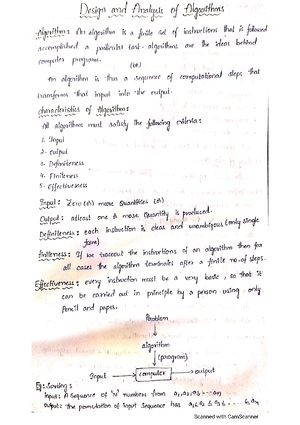 Design and Analysis of Algorithms
Algorithm: An algorithm is a finite set of instructions that is followed
accomplished a particular task. algorithms are the ideas behind
computer programs.
(or)
An algorithm is thus a sequence of computational steps that
transforms that input into the output.
characteristics of Algorithm:
All algorithms must satisfy the following criteria:
1. Input
2. output
3. Definiteness
4. Finiteness
5. Effectiveness
Input: Zero (or) more Quantities
Output: atleast one & more Quantity is produced.
Definiteness: each instruction is clear and unambiguous (only single
Finiteness: If we traceout the instructions of an algorithm then for
all cases the algorithm terminates after a finite no. of steps.
Effectiveness: every instruction must be a very basic, so that it
can be carried out in principle by a person using only
Pencil and paper.
Problem
algorithm
(program)
Input computer output
Eg: Sorting:
Input: A Sequence of 'n' numbers from
output: the permutation of Input Sequence has
Scanned with CamScanner